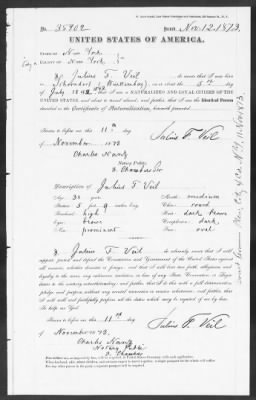 No. 35902 Issued Nov. 12. 1873.
UNITED STATES OF AMERICA.
STATE OF New York
COUNTY OF New York
I, Julius F. Veil, do swear that I was born
in Schorndorf (Württemberg) on or about the 5th day
of July 1842, that I am a NATURALIZED AND LOYAL CITIZEN OF THE
UNITED STATES, and about to travel abroad; and further, that I am the Identical Person
described in the Certificate of Naturalization, herewith presented.
Sworn to before me this 11th day
of November 1873
Julius F. Veil
Charles Nantz
Notary Public
Description of Julius F. Veil
Age: 31 years
Mouth: medium
Stature: 5 feet inches, Eng.
Chin: round
Forehead: high
Hair: dark brown
Eyes: brown
Complexion: dark
Nose: prominent
Face: oval
I, Julius F. Veil do solemnly swear that I will
support, protect and defend the Constitution and Government of the United States against
all enemies, whether domestic or foreign; and that I will bear true faith, allegiance and
loyalty to the same, any ordinance, resolution or law of any State Convention or Legis-
lature to the contrary notwithstanding; and further, that I do this with a full determination,
pledge and purpose, without any mental reservation or evasion whatsoever; and further, that
I will well and faithfully perform all the duties which may be required of me by law.
So help me God.
Sworn to before me this 11th day
of November 1873.
Julius F. Veil
Charles Nantz
Notary Public